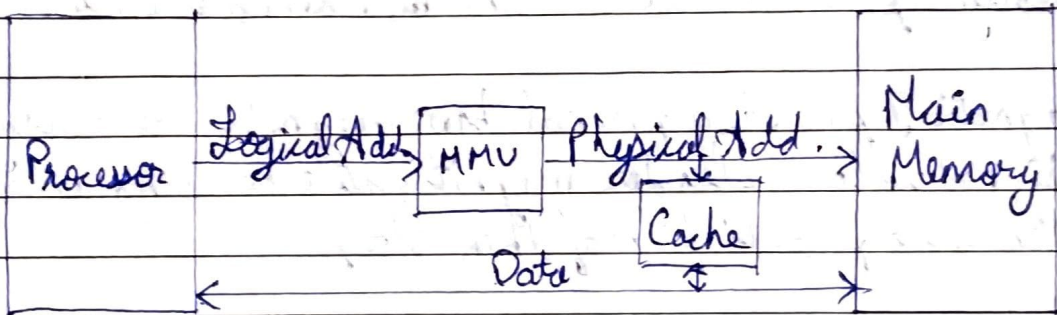 Processor
Logical Add.
MMU
Physical Add.
Main
Memory
Cache
Data